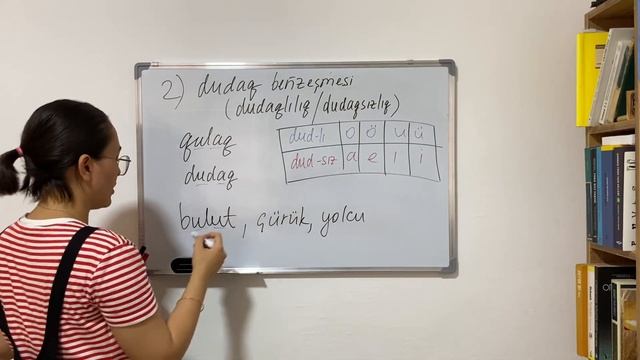 2) dudaq benzeşmesi
(dudaqlılıq/dudaqsızlıq)
qulaq
dudaq
dud-lı o ö u ü
dud-sız a e ı i
bulut, çürük, yolcu